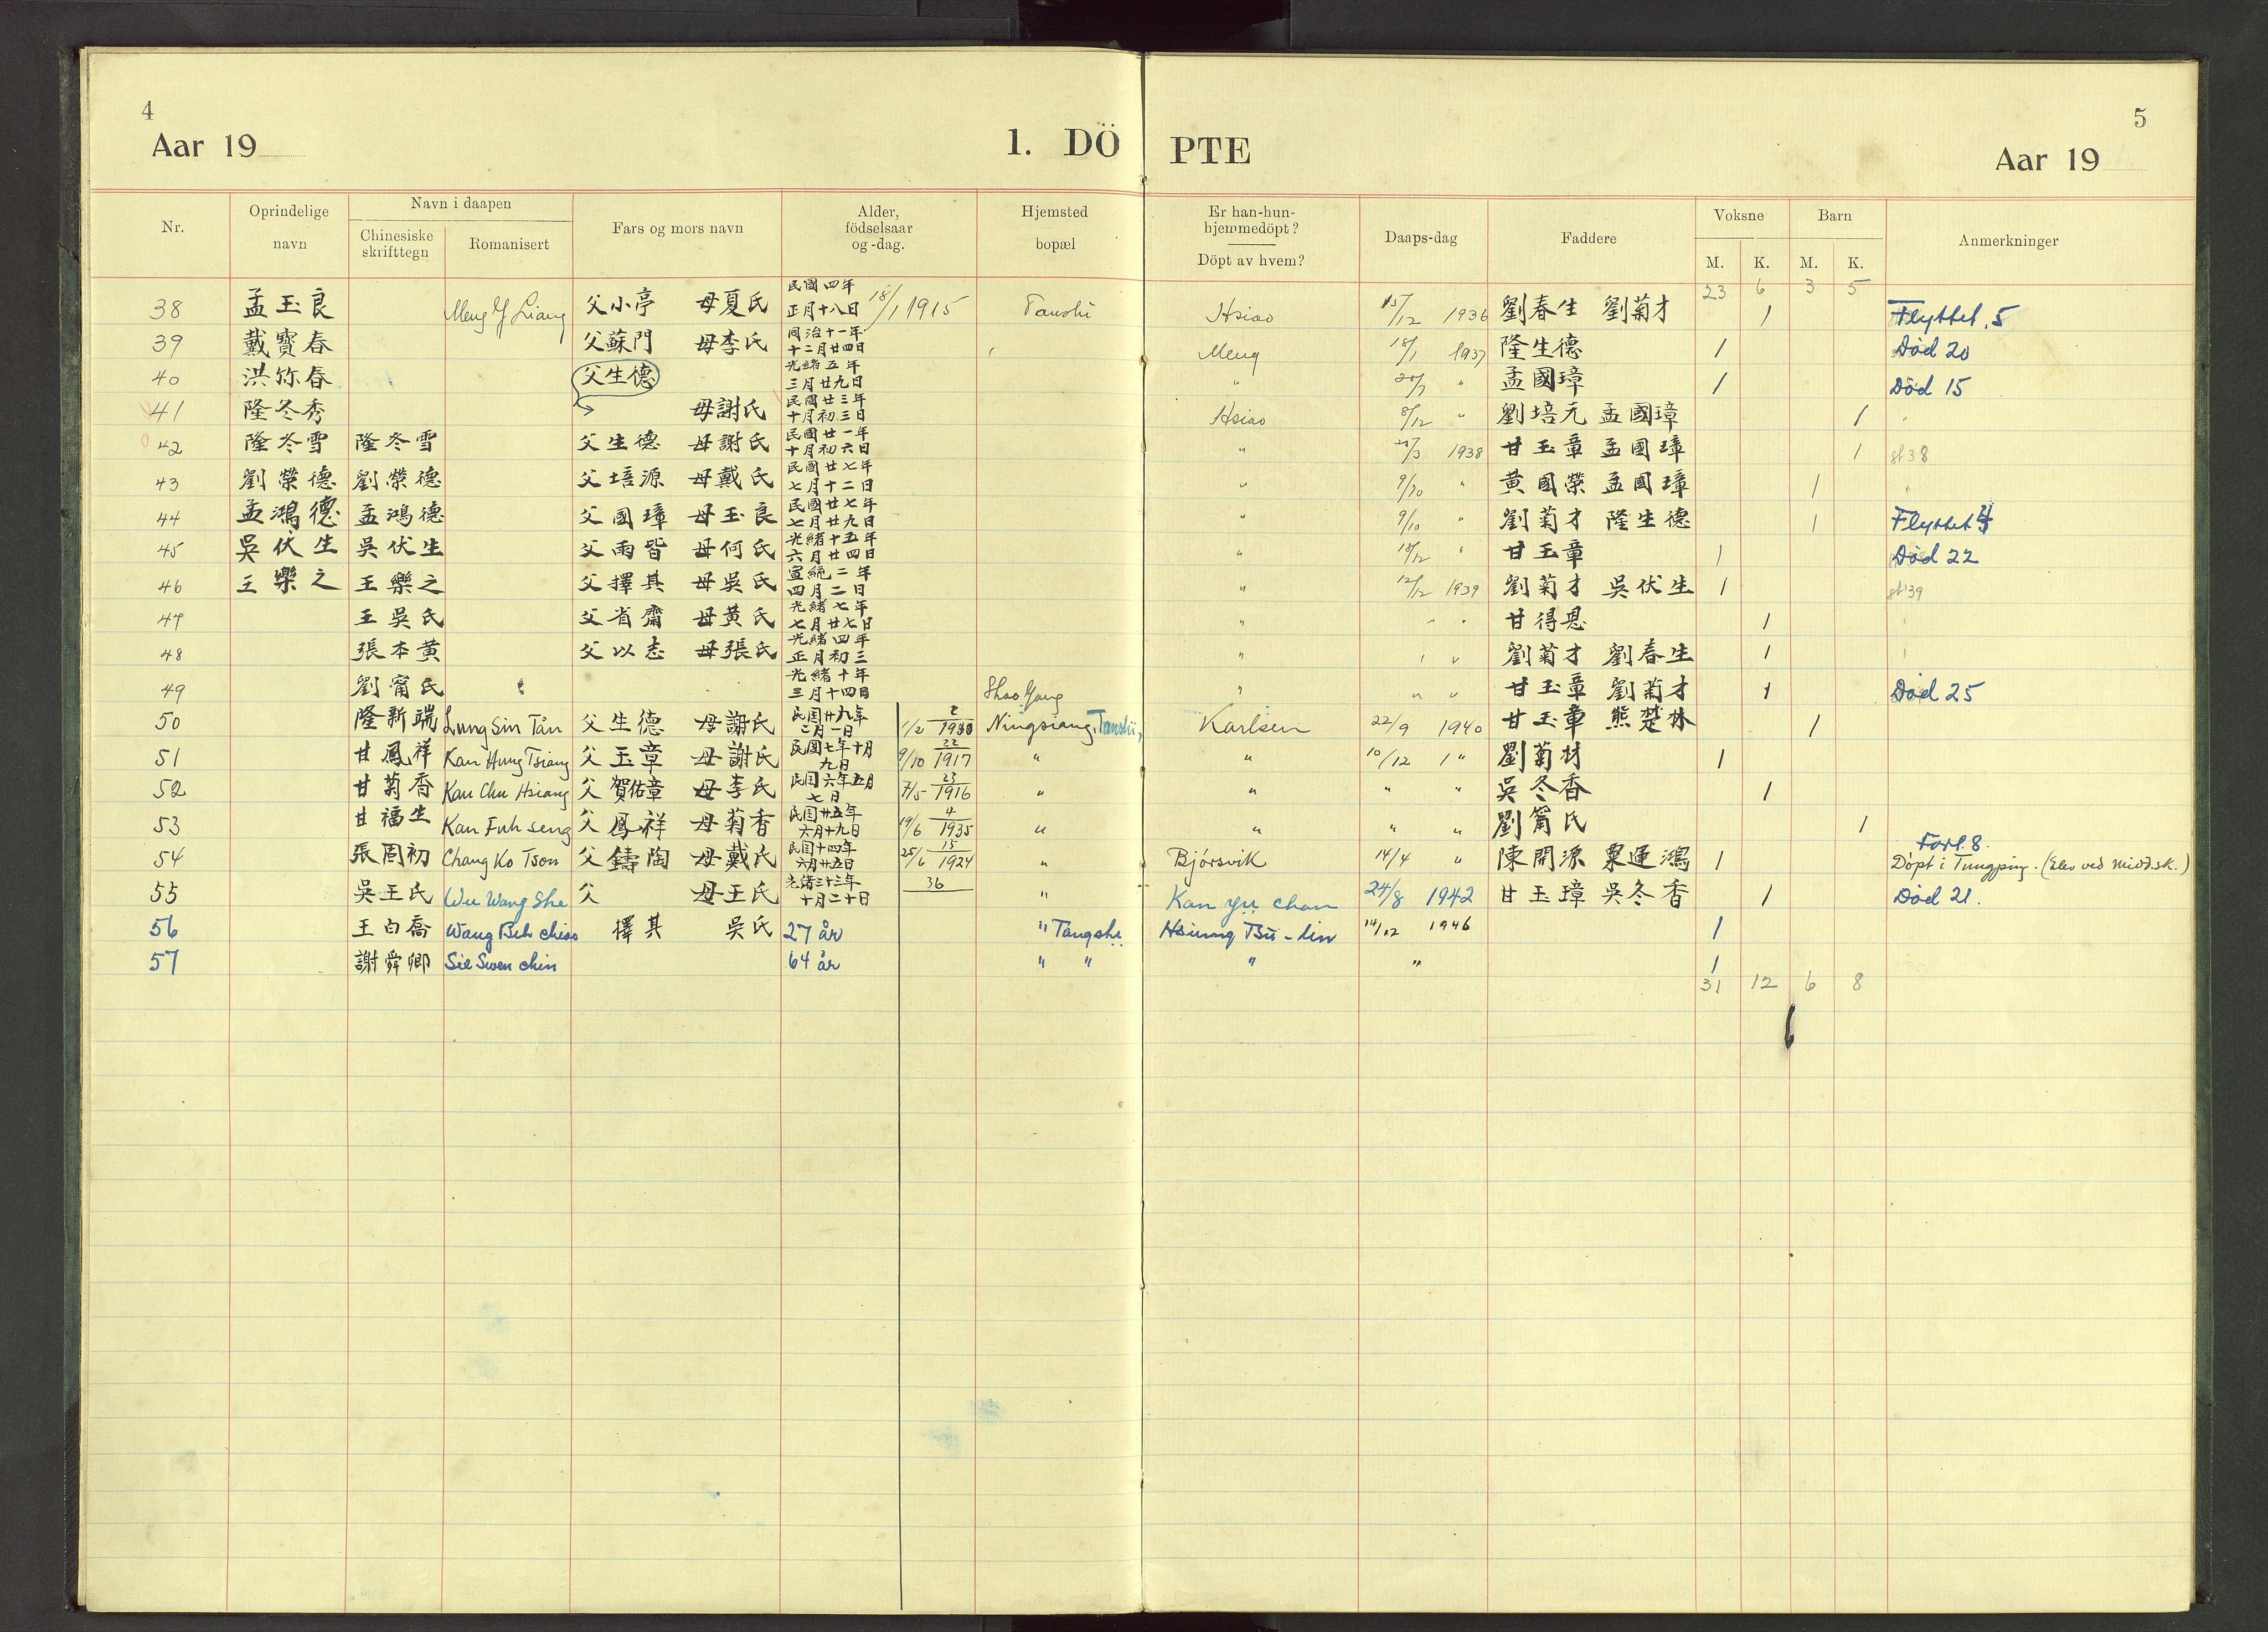 4
Aar 19
1. DÖ
PTE
5
Aar 19
Nr.
Oprindelige navn
Navn i daapen
Chinesiske skrifttegn
Romanisert
Fars og mors navn
Alder, födselsaar og -dag.
Hjemsted bopæl
Er han-hun- hjemmedöpt?
Döpt av hvem?
Daaps-dag
Faddere
Voksne
M.
K.
Barn
M.
K.
Anmerkninger
23 6 3 5
38 孟玉良 Meng Y Liang 父小亭 母夏氏 民國四年正月十八日 18/1 1915 Tanshi Hsiao 15/12 1936 劉春生 劉菊才 / Flyttet. 5
39 戴寶春 父蘇門 母李氏 同治十一年十二月廿四日 Meng 18/1 1937 隆生德 / Død 20
40 洪弥春 父生德 光緒五年三月廿九日 " " 孟國璋 / Død 15
41 隆冬秀 母謝氏 民國廿三年十月初三日 Hsiao 8/12 " 劉培元 孟國璋 /
42 隆冬雪 隆冬雪 父生德 母謝氏 民國廿一年十月初六日 " 1938 甘玉章 孟國璋 / st 38
43 劉榮德 劉榮德 父培源 母戴氏 民國廿七年七月十二日 " 9/10 " 黄國榮 孟國璋 / "
44 孟鴻德 孟鴻德 父國璋 母玉良 民國廿七年七月廿九日 " 9/10 " 劉菊才 隆生德 / Flyttet
45 吳伏生 吳伏生 父雨皆 母何氏 光緒十五年六月廿四日 " 18/12 " 甘玉章 / Død 22
46 王樂之 王樂之 父擇其 母吳氏 宣統二年四月二日 " 12/12 1939 劉菊才 吳伏生 / st 39
47 王吳氏 父省齋 母黄氏 光緒七年七月廿七日 " " " 甘得恩 /
48 張本黄 父以志 母張氏 光緒四年正月初三 " " " 劉菊才 劉春生 /
49 劉甯氏 光緒十年三月十四日 Shao Yang " " " 甘玉章 劉菊才 / Død 25
50 隆新瑞 Lung Sin Tån 父生德 母謝氏 民囯廿九年二月一日 1/2 2 1940 Ningsiang, Tanshi, Karlsen 22/9 1940 甘玉章 熊楚林 /
51 甘鳳祥 Kan Hung Tsiang 父玉章 母謝氏 民國七年十月九日 9/10 22 1917 " " 10/12 " 劉菊材 /
52 甘菊香 Kan Chu Hsiang 父賀佑章 母李氏 民囯六年五月七日 7/5 23 1916 " " " " 吳冬香 /
53 甘福生 Kan Fuh seng 父鳳祥 母菊香 民囯廿五年六月十九日 19/6 4 1935 " " " " 劉甯氏 /
54 張囯初 Chang Ko Tson 父鑄陶 母戴氏 民囯十四年六月廿五日 25/6 15 1924 " Bjórsvik 14/4 " 陳開源 粟運鴻 / Forl. 8. Döpt i Tungping. (Elev ved midd.sk.)
55 吳王氏 Wu Wang She 父 母王氏 光緒三十三年十月二十日 36 " Kan yu chan 24/8 1942 甘玉璋 吳冬香 / Død 21.
56 王白喬 Wang Beh chiao 擇其 吳氏 27 år " Tangshi Hsiung Tsü-lin 14/12 1946 /
57 謝舜卿 Sie Swen chin 64 år " " " " /
31 12 6 8